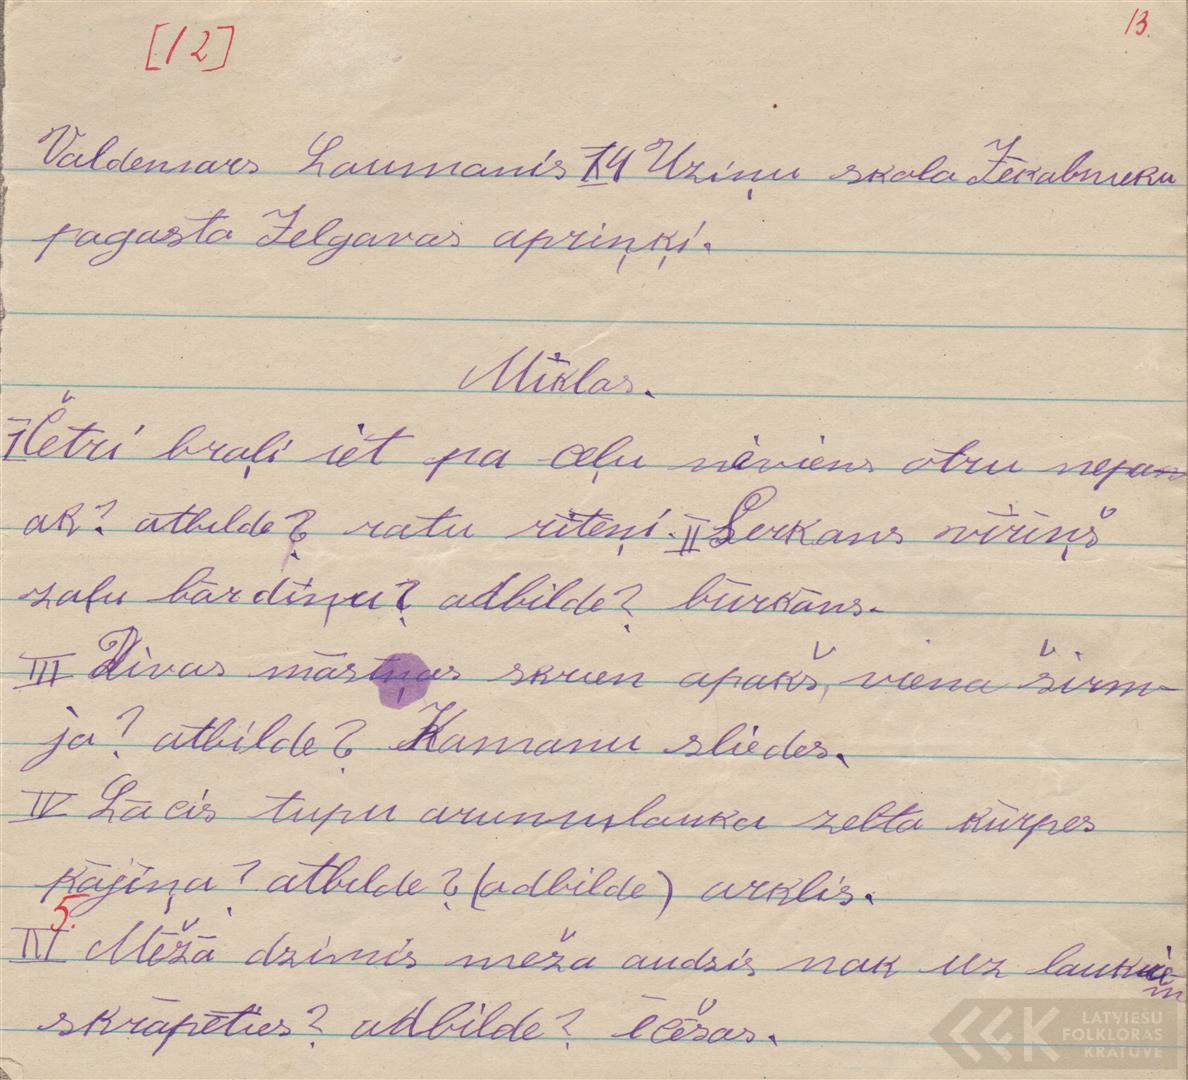 [12]
13.
Valdemars Laumanis 14 Uziņu skola Jēkabnieku
pagasta Jelgavas apriņķi.
Mīklas.
I Četri braļi iet pa ceļu nēviens otru nepan
ak? atbilde? ratu riteņi. II Serkans vīriņš
zaļu bārdiņu? adbilde? būrkāns.
III Divas māstņas skrien apakš, viena širm-
ja? atbilde? Kamanu sliedes.
IV Lācis tupu arumu lauka zelta kūrpes
kājiņa? atbilde? (adbilde) arklis.
5.
IV Mēžā dzimis meža audzis nak uz laukiem
skrāpēties? adbilde? ēcēšas.
LATVIEŠU
FOLKLORAS
KRĀTUVE